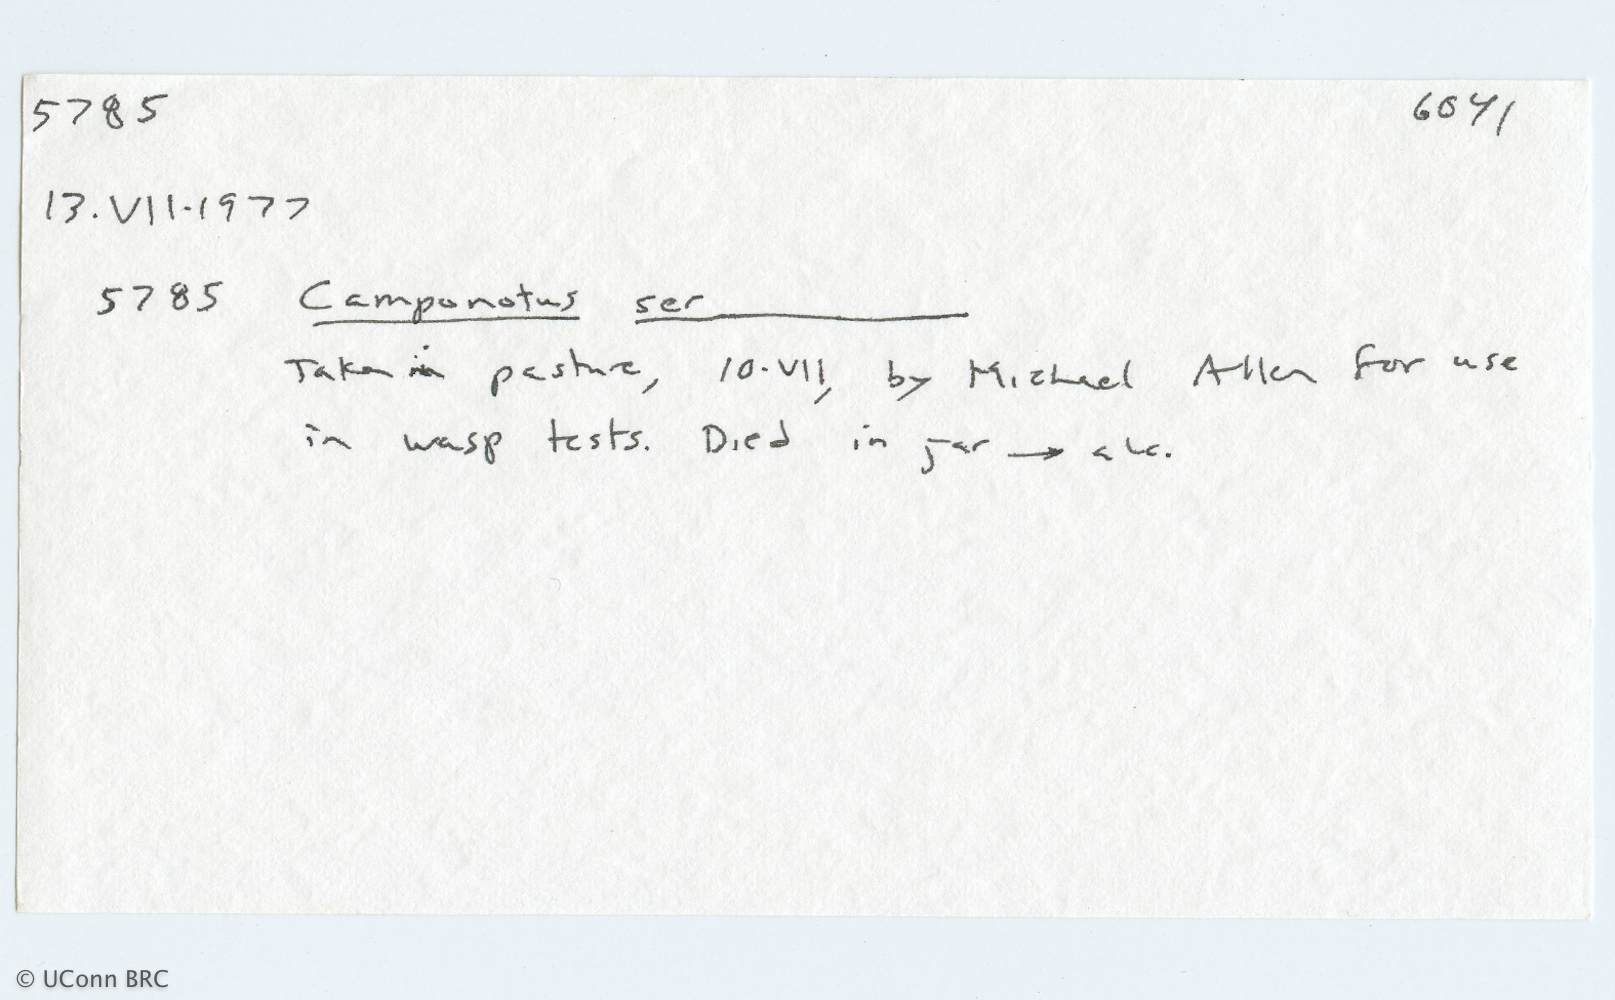 5785 6041
13.VII.1977
5785 Camponotus ser__________
Taken in pasture, 10.VII, by Michael Allen for use
in wasp tests. Died in jar → alc.
© UConn BRC